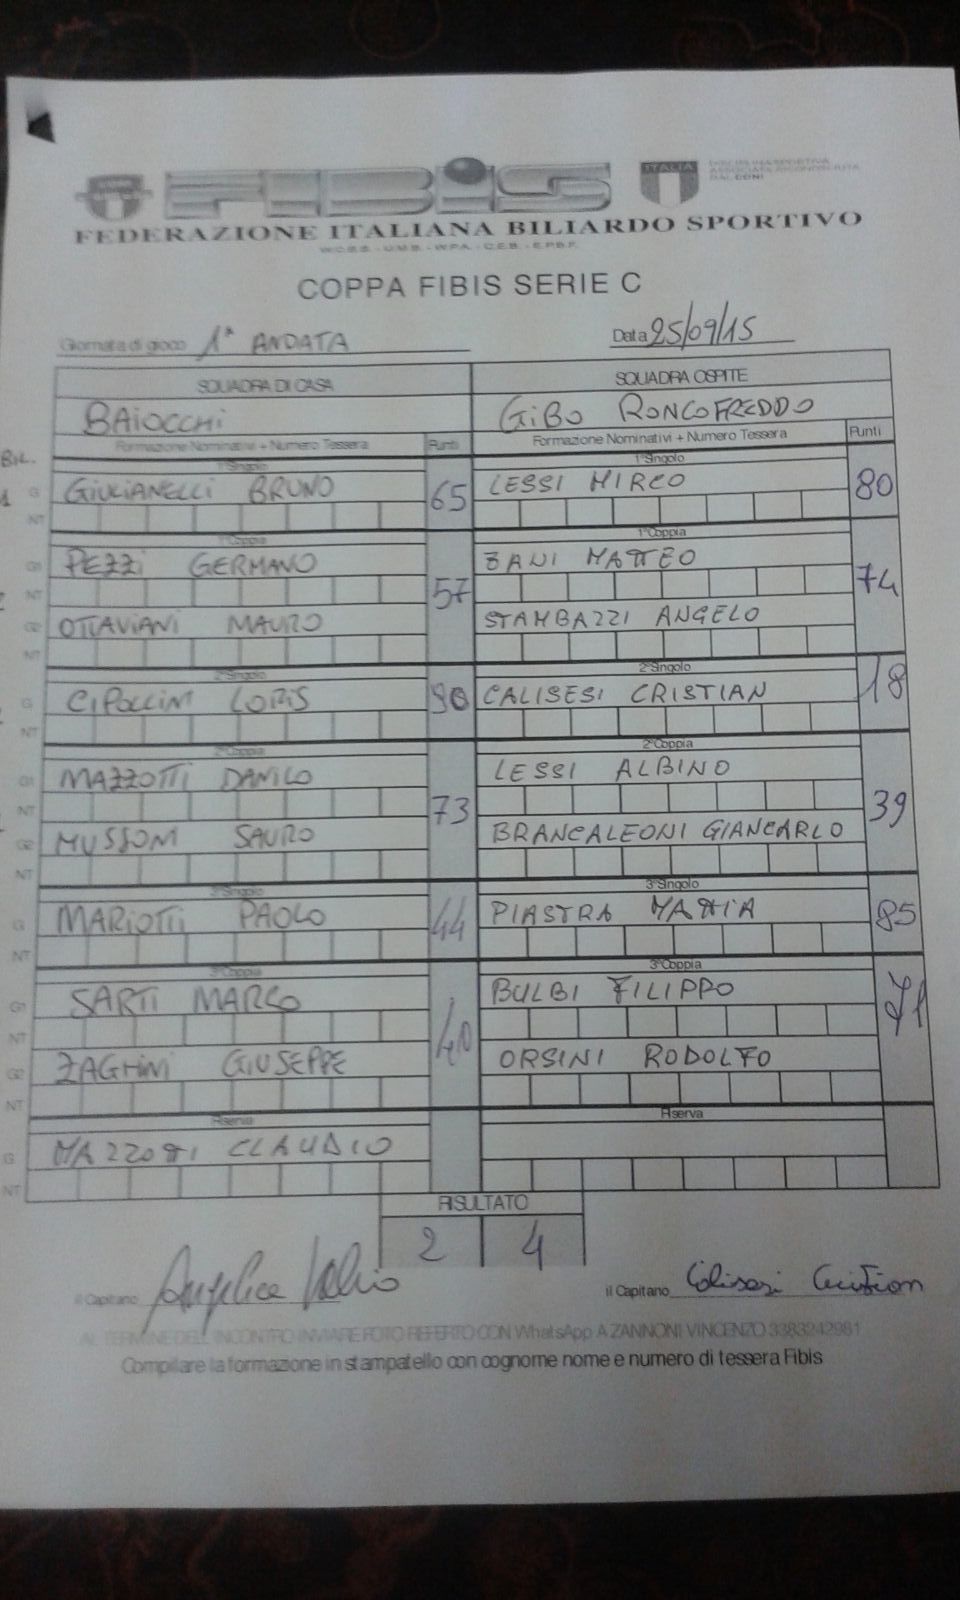 FIBiS
ITALIA
FEDERAZIONE ITALIANA BILIARDO SPORTIVO
W.C.B.S. - U.M.B. - W.P.A. - C.E.B. - E.P.B.F.
COPPA FIBIS SERIE C
Giornata di gioco 1ª ANDATA Data 25/09/15
SQUADRA DI CASA SQUADRA OSPITE
BAIOCCHI GiBO RONCOFREDDO
Formazione Nominativi + Numero Tessera Punti Formazione Nominativi + Numero Tessera Punti
1°Singolo 1°Singolo
G GIULIANELLI BRUNO 65 LESSI MIRCO 80
NT
1°Coppia 1°Coppia
G1 PEZZI GERMANO 57 ZANI MATTEO 74
NT
G2 OTTAVIANI MAURO STAMBAZZI ANGELO
NT
2°Singolo 2°Singolo
G CIPOLLINI LORIS 90 CALISESI CRISTIAN 18
NT
2°Coppia 2°Coppia
G1 MAZZOTTI DANILO 73 LESSI ALBINO 39
NT
G2 MUSSONI SAURO BRANCALEONI GIANCARLO
NT
3°Singolo 3°Singolo
G MARIOTTI PAOLO 44 PIASTRA MATTIA 85
NT
3°Coppia 3°Coppia
G1 SARTI MARCO 40 BULBI FILIPPO 71
NT
G2 ZAGHINI GIUSEPPE ORSINI RODOLFO
NT
Riserva Riserva
G MAZZOTTI CLAUDIO
NT
RISULTATO
2 4
il Capitano il Capitano Calisesi Cristian
AL TERMINE DELL'INCONTRO INVIARE FOTO REFERTO CON WhatsApp A ZANNONI VINCENZO 3383242981
Compilare la formazione in stampatello con cognome nome e numero di tessera Fibis